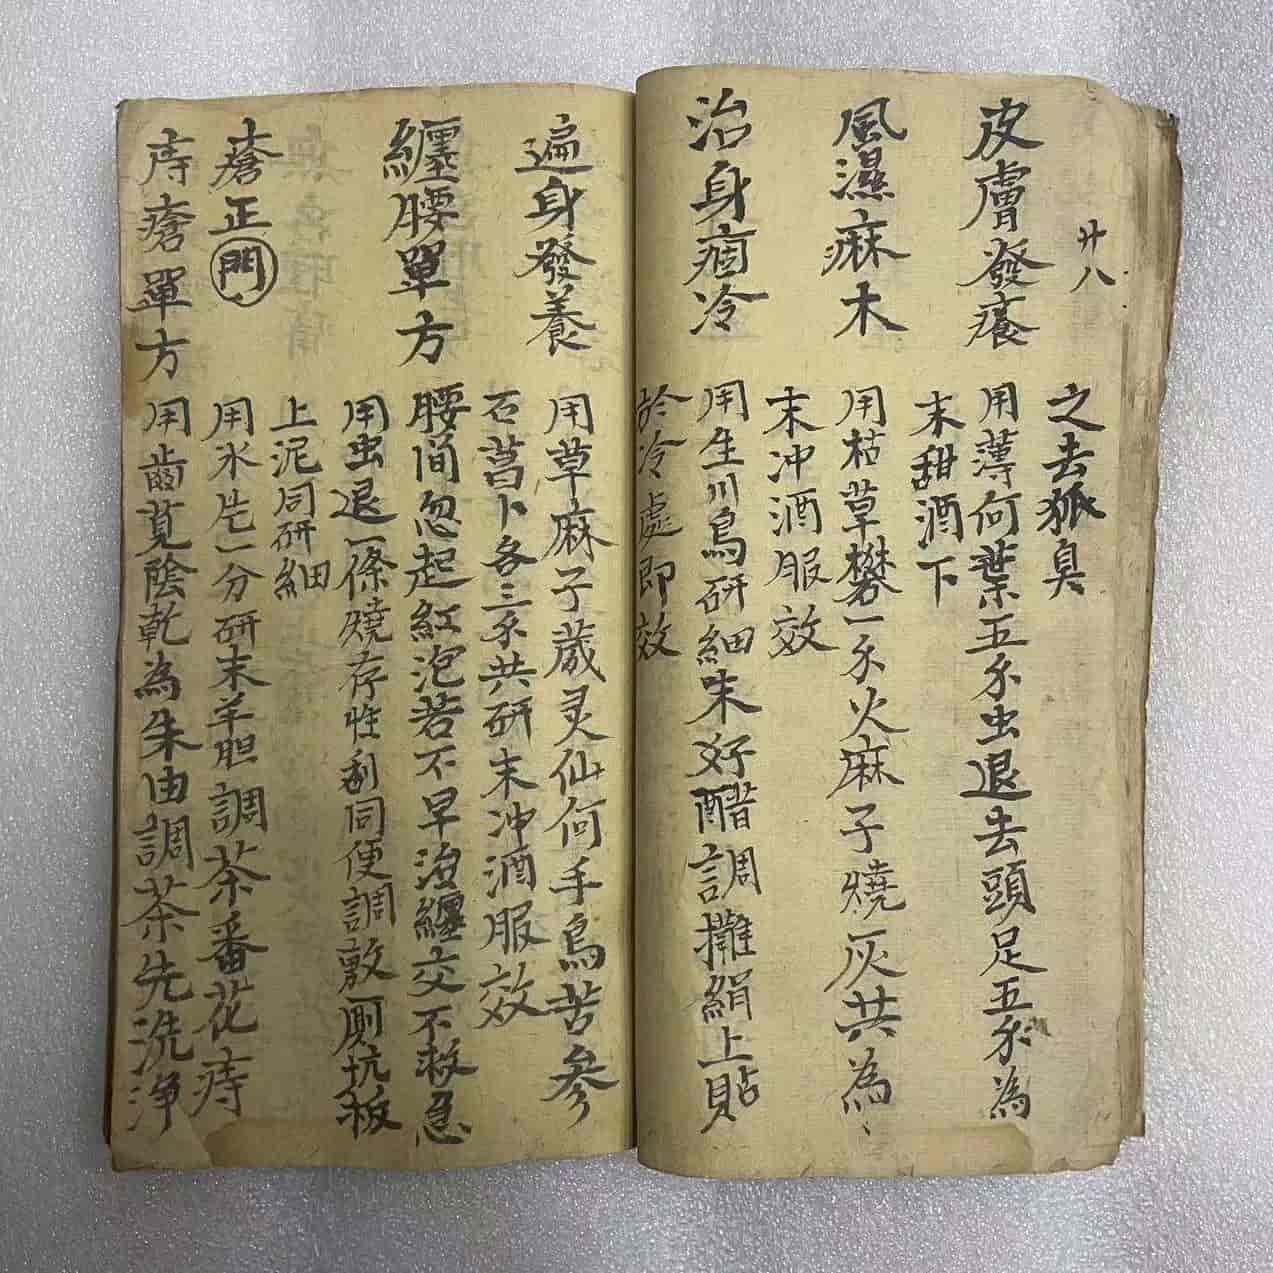 廿八
之去狐臭
皮膚發癢
用薄何葉五分虫退去頭足五分為
末甜酒下
風濕麻木
用枯草礬一分火麻子燒灰共為
末冲酒服效
治身痼冷
用生川烏研細末好醋調攤絹上貼
於冷處即效
遍身發養
用草麻子葳灵仙何手烏苦參
石菖卜各三分共研末冲酒服效
纏腰單方
腰間忽起紅泡若不早治纏交不救急
用虫退一條燒存性利同便調敷厠坑板
上泥同研細
瘡正門
用氷片一分研末羊胆調茶番花痔
痔瘡單方
用齒莧陰乾為朱由調茶先洗淨